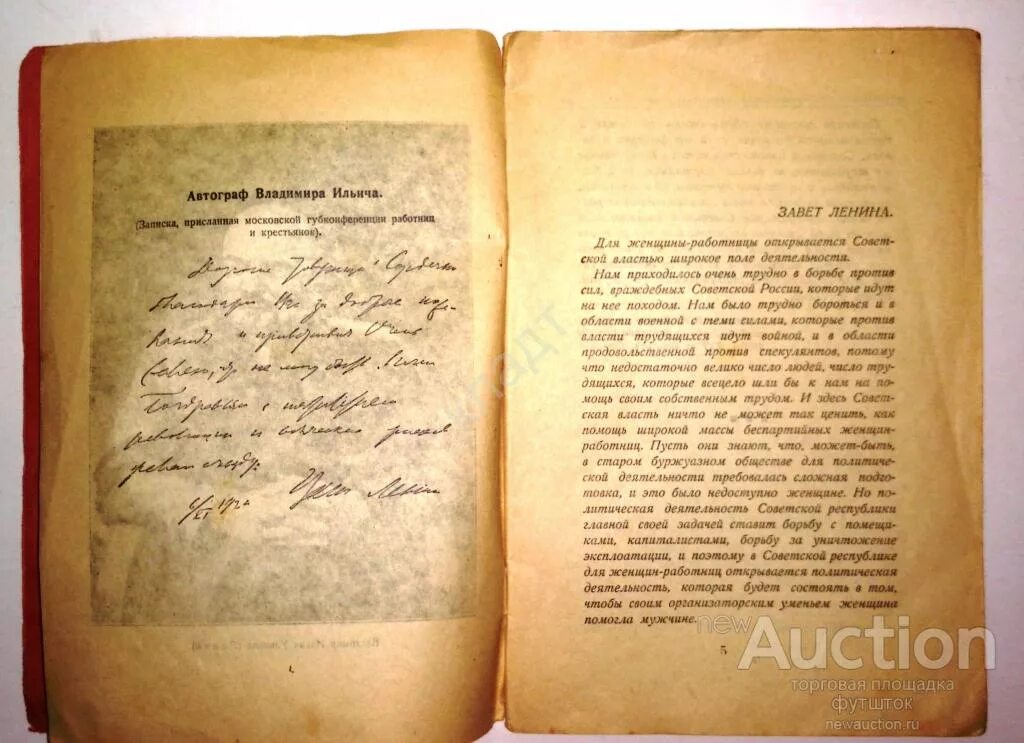 Автограф Владимира Ильича.
(Записка, присланная московской губконференции работниц
и крестьянок).
Дорогие товарищи! Сердечно
благодарю Вас за добрые поже-
лания и приветствия. Очень
сожалею, что не могу быть лично.
Поздравляю с
революции и
6/XI 1920
Ленин
ЗАВЕТ ЛЕНИНА.
Для женщины-работницы открывается Совет-
ской властью широкое поле деятельности.
Нам приходилось очень трудно в борьбе против
сил, враждебных Советской России, которые идут
на нее походом. Нам было трудно бороться и в
области военной с теми силами, которые против
власти трудящихся идут войной, и в области
продовольственной против спекулянтов, потому
что недостаточно велико число людей, число тру-
дящихся, которые всецело шли бы к нам на по-
мощь своим собственным трудом. И здесь Совет-
ская власть ничто не может так ценить, как
помощь широкой массы беспартийных женщин-
работниц. Пусть они знают, что, может-быть,
в старом буржуазном обществе для политиче-
ской деятельности требовалась сложная подго-
товка, и это было недоступно женщине. Но по-
литическая деятельность Советской республики
главной своей задачей ставит борьбу с помещи-
ками, капиталистами, борьбу за уничтожение
эксплоатации, и поэтому в Советской республике
для женщин-работниц открывается политическая
деятельность, которая будет состоять в том,
чтобы своим организаторским уменьем женщина
помогла мужчине.
5
newAuction
торговая площадка
футшток
newauction.ru